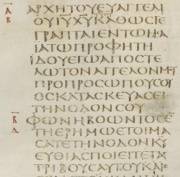 ΑΡΧΗΤΟΥΕΥΑΓΓΕΛΙ
ΟΥΙΥΧΥΚΑΘΩϹΓΕ
ΓΡΑΠΤΑΙΕΝΤΩΗϹΑ
ΙΑΤΩΠΡΟΦΗΤΗ
ΙΔΟΥΕΓΩΑΠΟϹΤΕ
ΛΩΤΟΝΑΓΓΕΛΟΝΜΟΥ
ΠΡΟΠΡΟϹΩΠΟΥϹΟΥ
ΟϹΚΑΤΑϹΚΕΥΑϹΕΙ
ΤΗΝΟΔΟΝϹΟΥ
ΦΩΝΗΒΟΩΝΤΟϹΕΝ
ΤΗΕΡΗΜΩΕΤΟΙΜΑ
ϹΑΤΕΤΗΝΟΔΟΝΚΥ
ΕΥΘΙΑϹΠΟΙΕΙΤΕΤΑϹ
ΤΡΙΒΟΥϹΑΥΤΟΥ